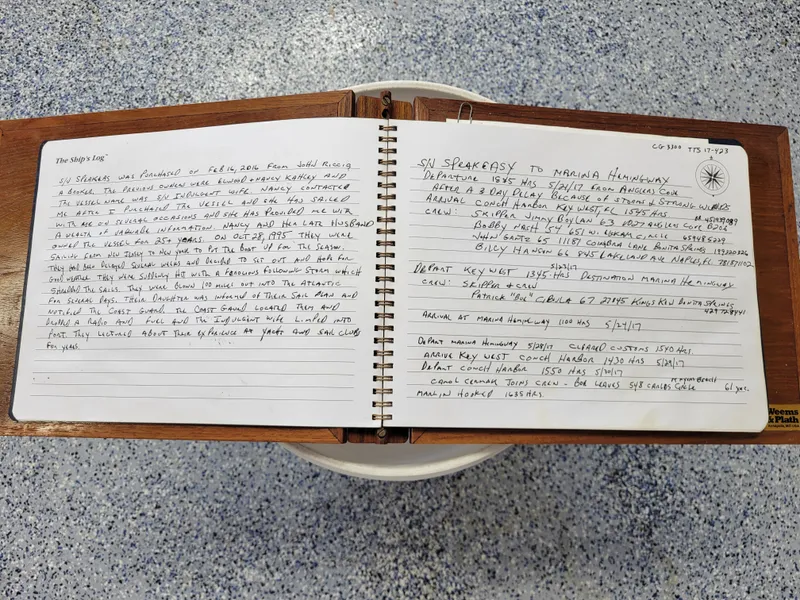 The Ship's Log™
S/V SPEAKERS WAS PURCHASED ON FEB 16, 2016 FROM JOHN
A BROKER. THE PREVIOUS OWNERS WERE ELWOOD & NANCY KAHLEY AND
THE VESSEL NAME WAS S/V INDULGENT WIFE. NANCY CONTACTED
ME AFTER I PURCHASED THE VESSEL AND SHE HAS SAILED
WITH ME ON SEVERAL OCCASIONS AND SHE HAS PROVIDED ME WITH
A WEALTH OF VALUABLE INFORMATION. NANCY AND HER LATE HUSBAND
OWNED THE VESSEL FOR 25+ YEARS. ON OCT 28, 1995 THEY WERE
SAILING FROM NEW JERSEY TO NEW YORK TO PUT THE BOAT UP FOR THE SEASON.
THEY HAD BEEN DELAYED SEVERAL WEEKS AND DECIDED TO SET OUT AND HOPE FOR
GOOD WEATHER. THEY WERE SUDDENLY HIT WITH A FEROCIOUS FOLLOWING STORM WHICH
SHREDDED THE SAILS. THEY WERE BLOWN 100 MILES OUT INTO THE ATLANTIC
FOR SEVERAL DAYS. THEIR DAUGHTER WAS INFORMED OF THEIR SAIL PLAN AND
NOTIFIED THE COAST GUARD. THE COAST GUARD LOCATED THEM AND
DROPPED A RADIO AND FUEL AND THE INDULGENT WIFE LIMPED INTO
PORT. THEY LECTURED ABOUT THEIR EXPERIENCE AT YACHT AND SAIL CLUBS
FOR YEARS.
CG-3300 TTS 17-423
S/V SPEAKEASY TO MARINA HEMINGWAY
DEPARTURE 1845 HRS 5/21/17 FROM ANGLERS COVE
AFTER A 3 DAY DELAY BECAUSE OF STORMS & STRONG WINDS
ARRIVAL CONCH HARBOR KEY WEST, FL 1545 HRS.
CREW: SKIPPER JIMMY BOYLAN 63
BOBBY NASH 54 651 W. CIRCLE 659485229
JOHN 65 11181 COIMBRA LANE BONITA SPRINGS
BILLY HANSEN 66 845 LAKELAND AVE NAPLES, FL
5/23/17
DEPART KEY WEST 1345 HRS DESTINATION MARINA HEMINGWAY
CREW: SKIPPER & CREW
PATRICK "BOB" 67 27845 KINGS KEW BONITA SPRINGS
ARRIVAL AT MARINA HEMINGWAY 1100 HRS 5/24/17
DEPART MARINA HEMINGWAY 5/28/17 CLEARED CUSTOMS 1540 HRS.
ARRIVE KEY WEST CONCH HARBOR 1430 HRS 5/29/17
DEPART CONCH HARBOR 1550 HRS 5/30/17
JOINS CREW - BOB LEAVES 548 CIRCLE 61 yrs.
MARLIN HOOKED 1635 HRS.
Weems
& Plath